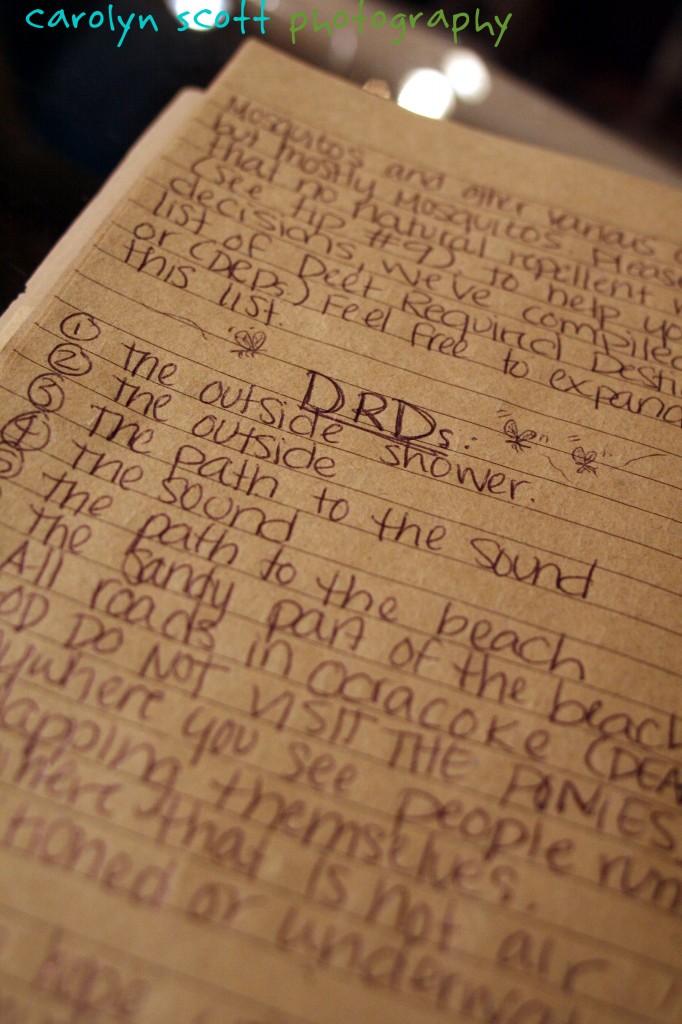 carolyn scott photography
Mosquito's and other various
but mostly Mosquitos. Please
that no natural repellent
(see tip #9) To help
decisions, we've compiled
list of Deet Required Desti
or (DRDs) Feel free to expand
this list.
DRDs:
① the outside shower.
② the outside
③ the path to the sound
④ the sound
5 the path to the beach
the sandy part of the beach
All roads in Ocracoke (DEA
OD DO NOT VISIT THE PONIES
ywhere you see people run
lapping themselves.
where that is not air
tioned or underwat
hope